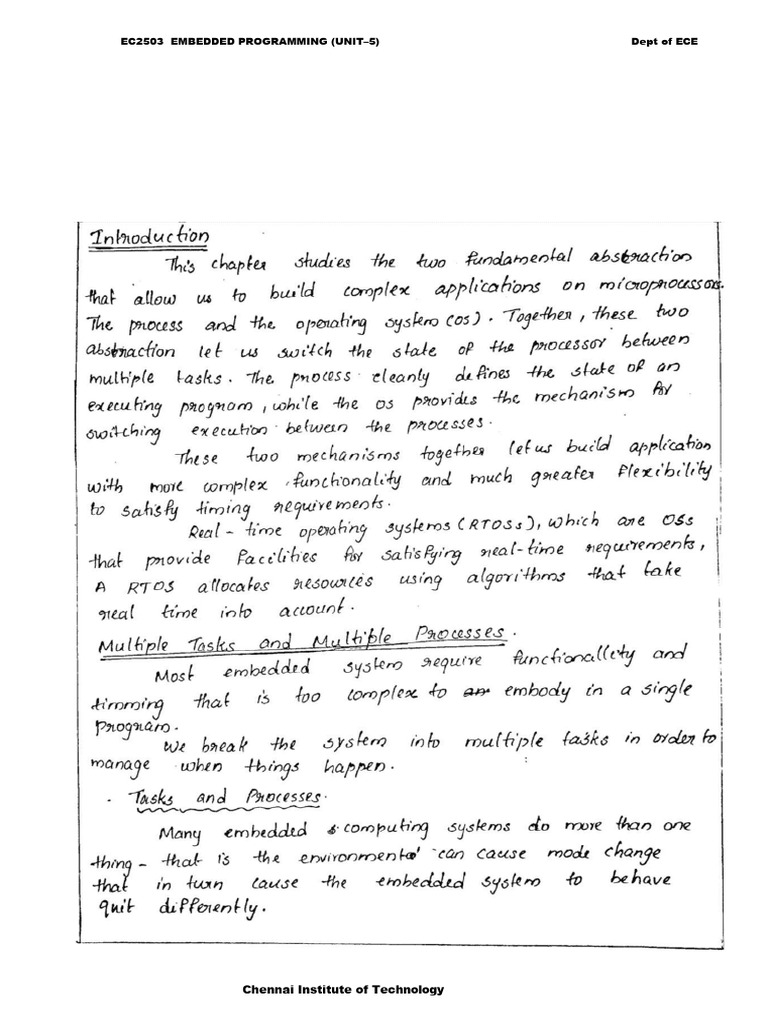 EC2503 EMBEDDED PROGRAMMING (UNIT–5) Dept of ECE
Introduction
This chapter studies the two fundamental abstraction
that allow us to build complex applications on microprocessors.
The process and the operating system (OS). Together, these two
abstraction let us switch the state of the processor between
multiple tasks. The process cleanly defines the state of an
executing program, while the OS provides the mechanism for
switching execution between the processes.
These two mechanisms together let us build application
with more complex functionality and much greater flexibility
to satisfy timing requirements.
Real-time operating systems (RTOSs), which are OSs
that provide facilities for satisfying real-time requirements,
A RTOS allocates resources using algorithms that take
real time into account.
Multiple Tasks and Multiple Processes.
Most embedded system require functionallity and
timming that is too complex to embody in a single
program.
We break the system into multiple tasks in order to
manage when things happen.
. Tasks and Processes.
Many embedded computing systems do more than one
thing - that is the environmental can cause mode change
that in turn cause the embedded system to behave
quit differently.
Chennai Institute of Technology